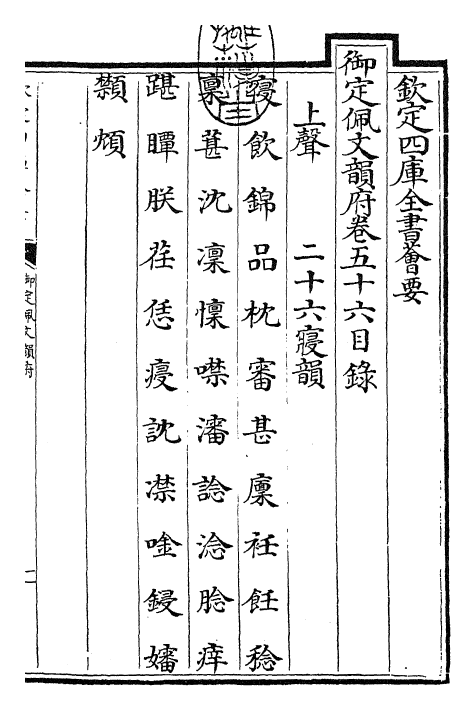 欽定四庫全書薈要
御定佩文韻府卷五十六目錄
上聲　二十六寢韻
寢飲錦品枕審甚廩衽飪稔
稟葚沈凜懍噤瀋諗淰腍痒
踸瞫朕荏恁㾛訦凚唫鋟嬸
顙㾕
御定佩文韻府